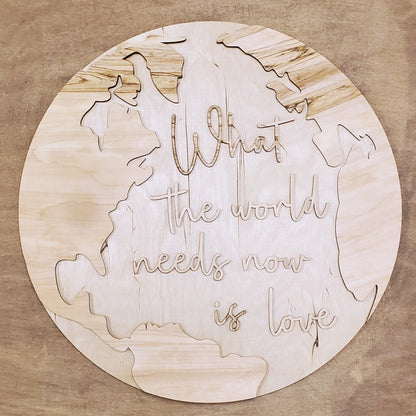 What
the world
needs now
is love